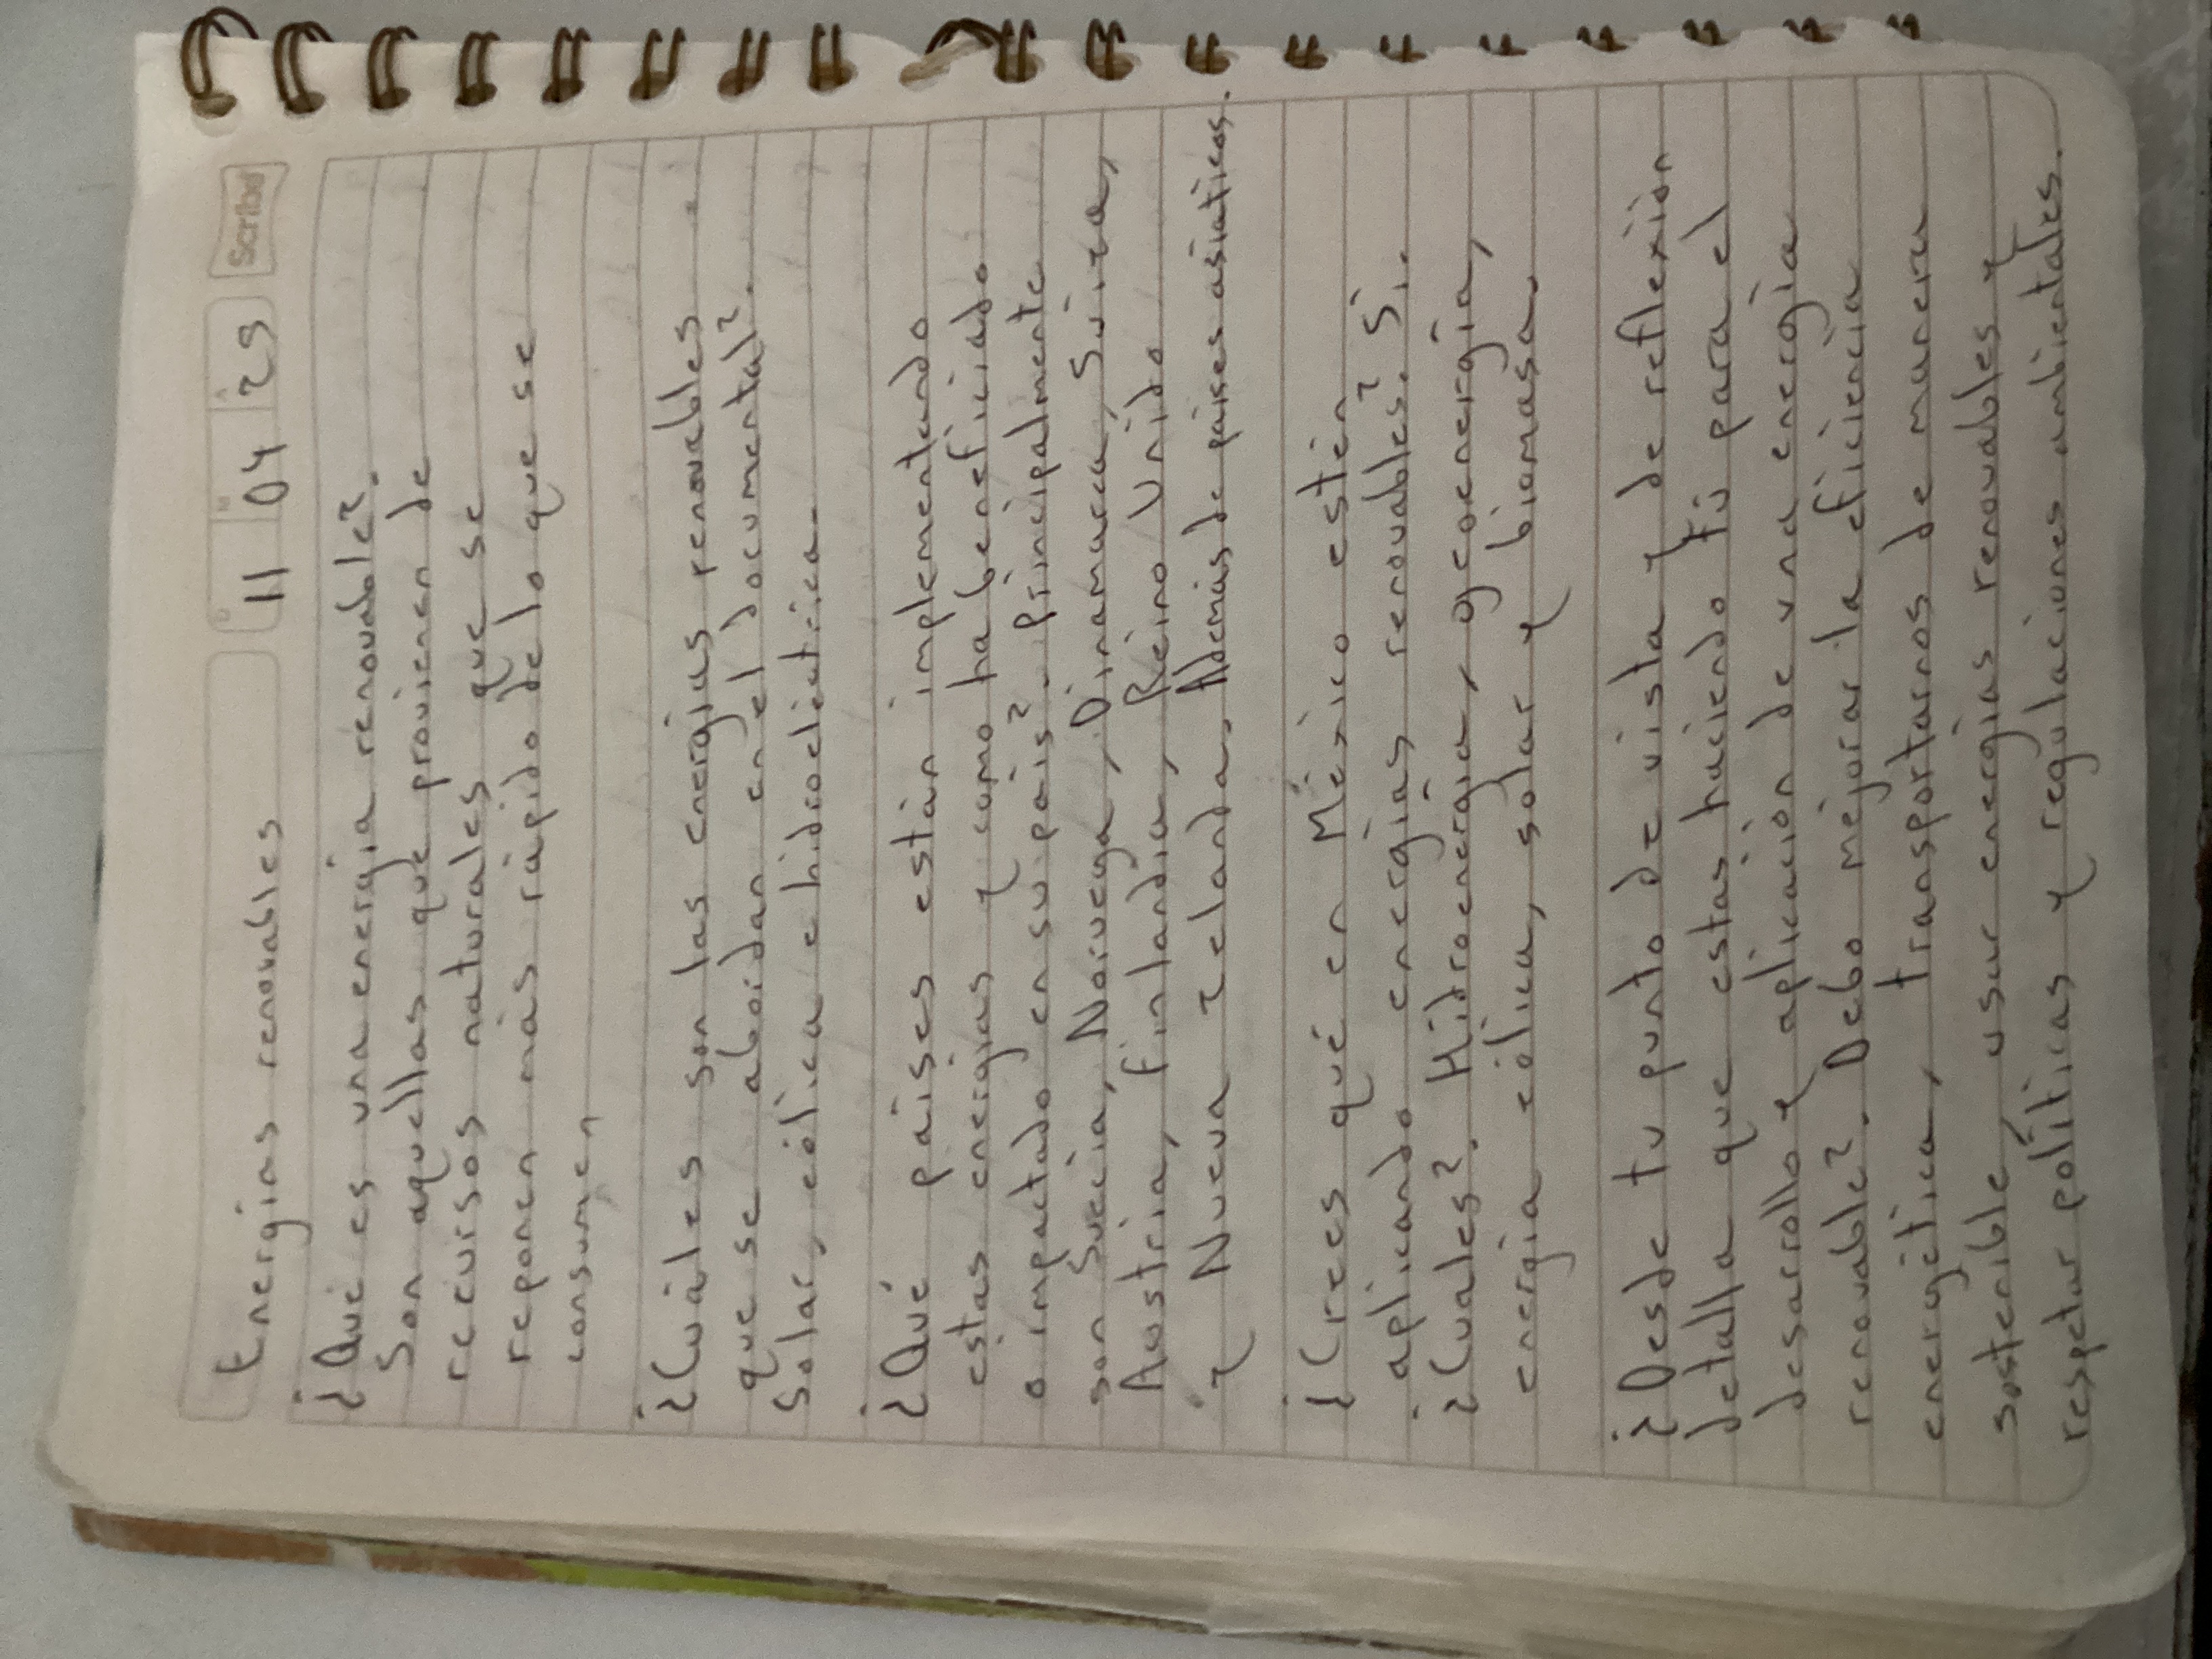 Energias renovables 11 04 29 Scribe
¿Qué es una energia renovable?.
Son aquellas que provienen de
recursos naturales que se
reponen más rápido de lo que se
consumen
¿Cuáles son las energías renovables
que se abordan en el documental?.
Solar, eólica e hidroeléctrica.
¿Qué países están implementando
estas energías y como ha beneficiado
o impactado en su país?. Principalmente
son Suecia, Noruega, Dinamarca, Suiza,
Austria, Finlandia, Reino Unido
y Nueva Zelanda, Además de países asiaticos.
¿Crees qué en México estén
aplicando energías renovables?. Si.
¿Cuales?. Hidroenergía,
energia eólica, solar y biomasa.
¿Desde tu punto de vista y de reflexión
detalla que estas haciendo tú para el
desarrollo y aplicación de una energía
renovable?. Debo mejorar la eficiencia
energética, transportarnos de manera
sostenible, usar energías renovables y
respetar políticas y regulaciones ambientales.